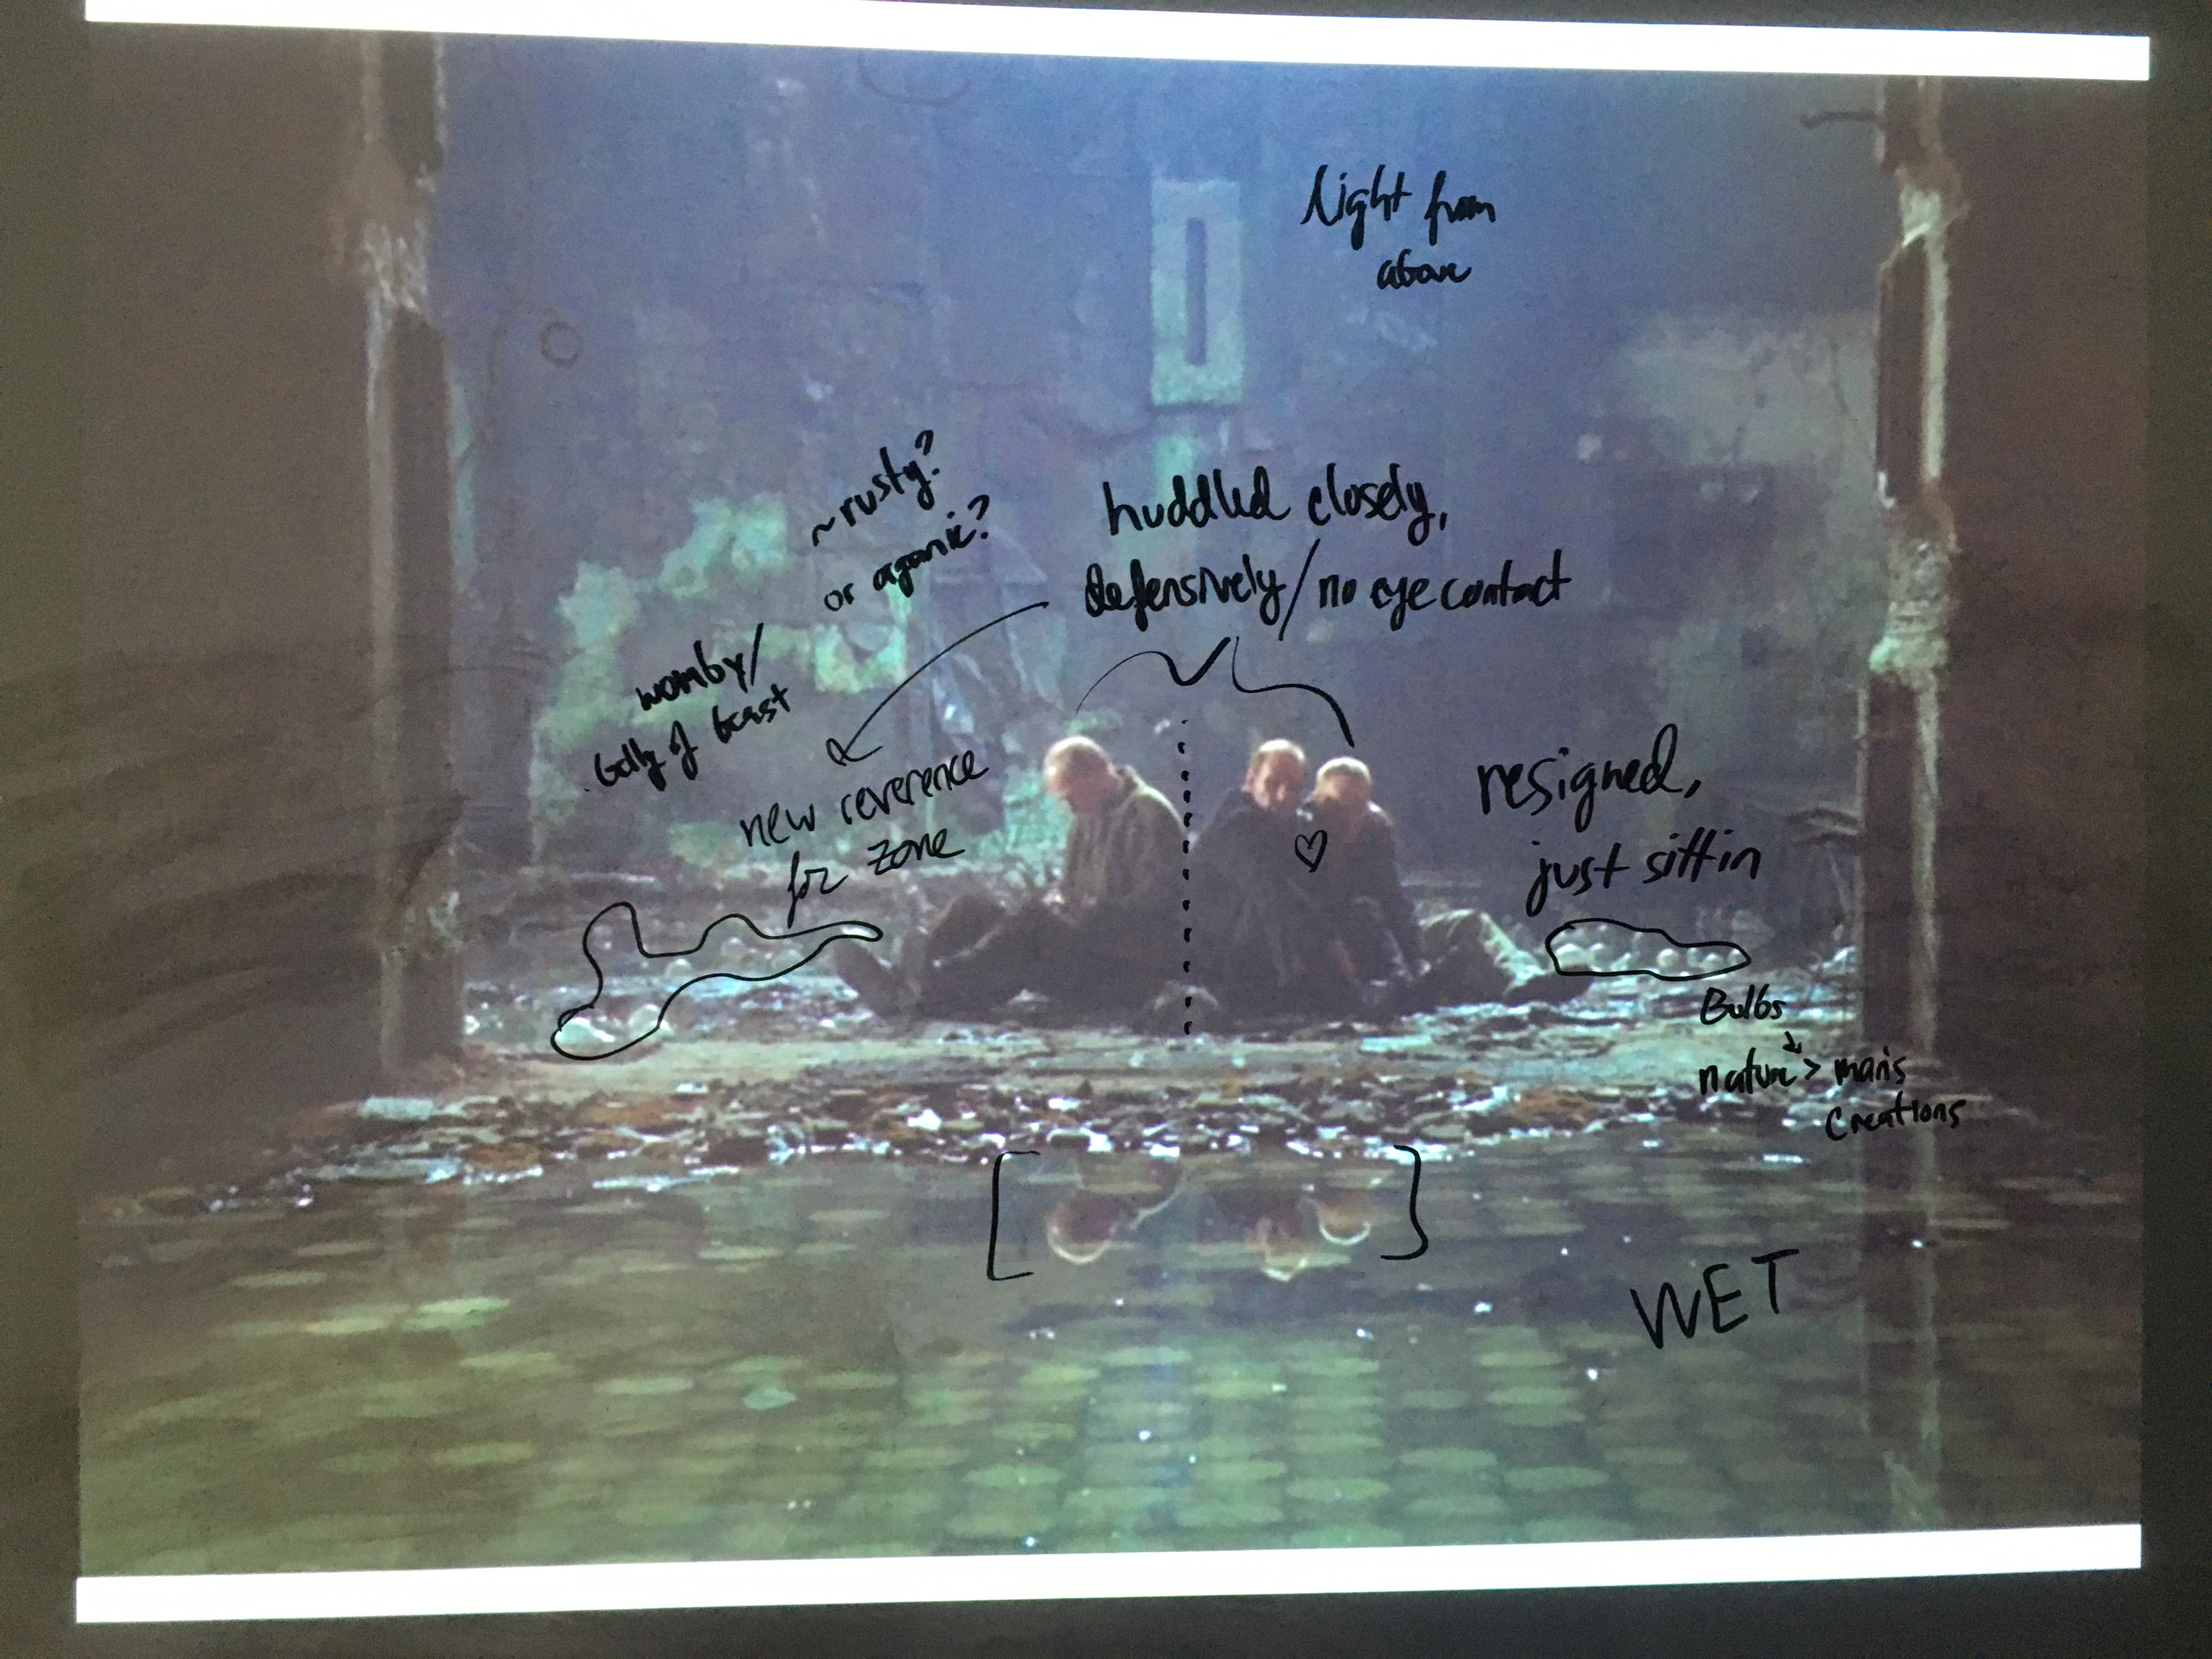 Light from
above
~rusty?
or organic?
huddled closely,
defensively/no eye contact
womby/
belly of beast
new reverence
for zone
resigned,
just sittin
Bulbs
nature > man's
creations
WET